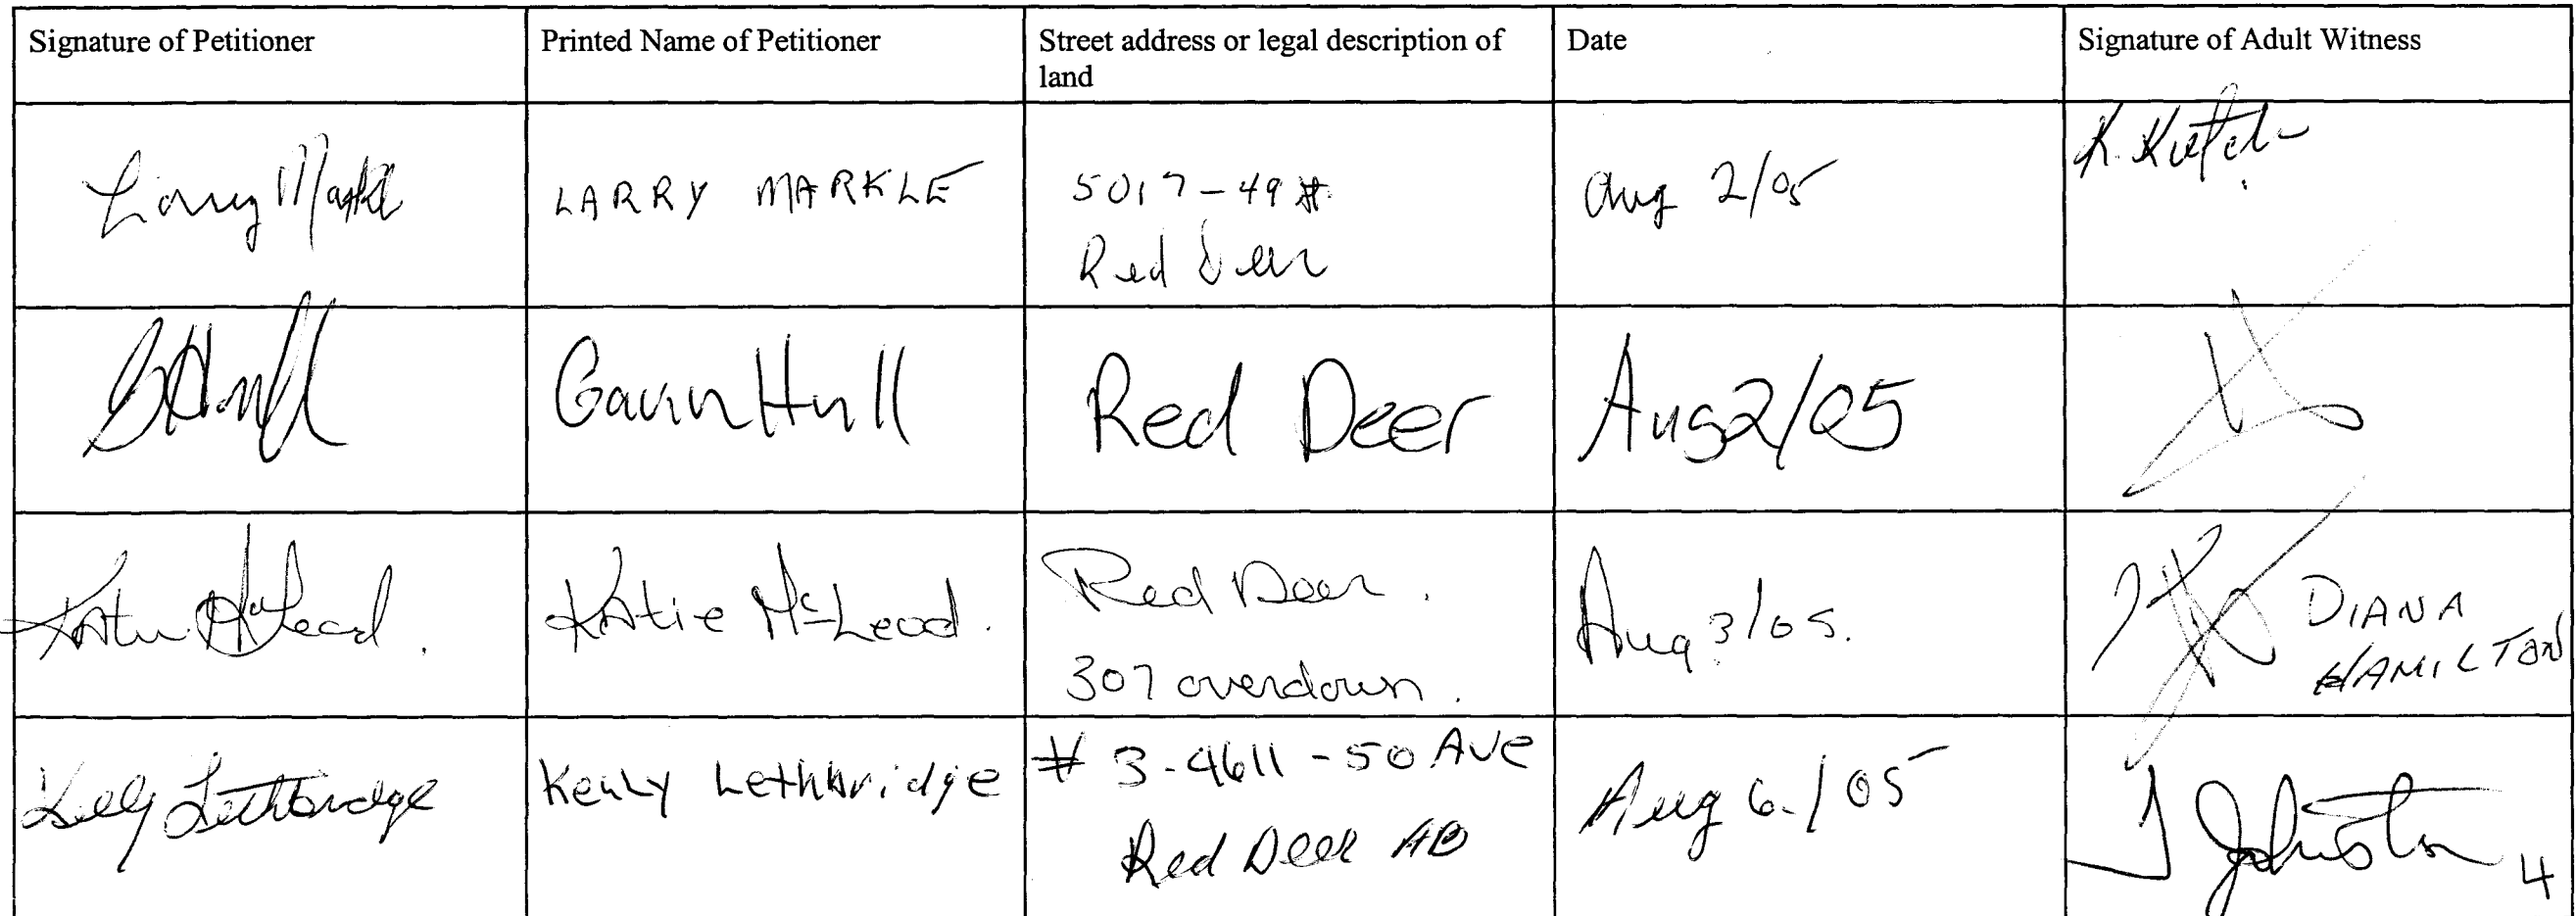 Signature of Petitioner
Printed Name of Petitioner
Street address or legal description of
land
Date
Signature of Adult Witness
Larry Markle
LARRY MARKLE
5017-49 st.
Red Deer
Aug 2/05
K.
G Hull
Gavin Hull
Red Deer
Aug 2/05
Katie McLeod.
Katie McLeod.
Red Deer.
307 overdown.
Aug 3/05.
DIANA
HAMILTON
Kelly Lethbridge
Kelly Lethbridge
# 3-4611-50 Ave
Red Deer AB
Aug 6./05
J Johnston
4